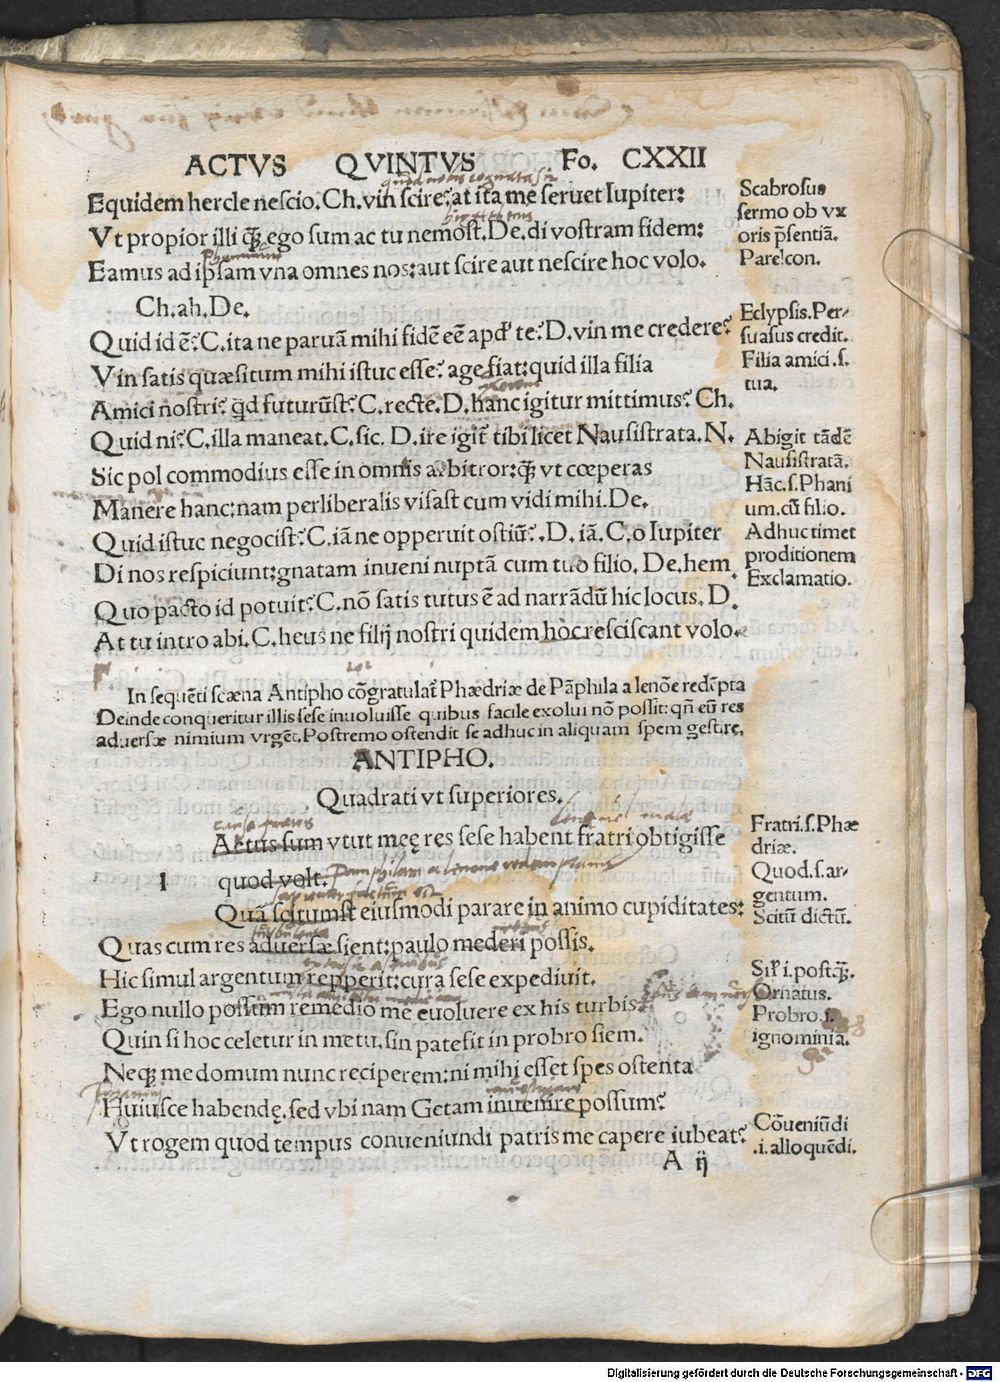 ACTVS QVINTVS Fo. CXXII
Equidem hercle nescio. Ch. vin scire? at ita me seruet Iupiter:
Vt propior illi q̃ȝ ego sum ac tu nemost. De. di vostram fidem:
Eamus ad ipsam vna omnes nos: aut scire aut nescire hoc volo.
Ch. ah. De.
Quid id ē? C. ita ne paruā mihi fidē eē apd' te? D. vin me credere?
Vin satis quæsitum mihi istuc esse? age fiat: quid illa filia
Amici nostri? qd futurūst? C. recte. D. hanc igitur mittimus? Ch.
Quid ni? C. illa maneat. C. sic. D. ire igit̃ tibi licet Nausistrata. N.
Sic pol commodius esse in omnis arbitror: q̃ȝ vt cœperas
Manere hanc: nam perliberalis visast cum vidi mihi. De.
Quid istuc negocist? C. iā ne opperuit ostiū? D. iā. C. o Iupiter
Di nos respiciunt: gnatam inueni nuptā cum tuo filio. De. hem
Quo pacto id potuit? C. nō satis tutus ē ad narrādū hic locus. D.
At tu intro abi. C. heus ne filij nostri quidem hoc resciscant volo.
Scabrosus
sermo ob vx
oris p̃sentiā.
Parelcon.
Eclypsis. Per-
suasus credit.
Filia amici .s.
tua.
Abigit tādē
Nausistratā.
Hāc .s. Phani
um. cū filio.
Adhuc timet
proditionem
Exclamatio.
In sequēti scæna Antipho cōgratulat̃ Phædriæ de Pāphila a lenōe redēpta
Deinde conqueritur illis sese inuoluisse quibus facile exolui nō possit: qñ eū res
aduersæ nimium vrgēt. Postremo ostendit se adhuc in aliquam spem gestire.
ANTIPHO.
Quadrati vt superiores.
Lætus sum vtut meę res sese habent fratri obtigisse
1 quod volt.
Quā scitumst eiusmodi parare in animo cupiditates:
Quas cum res aduersæ sient: paulo mederi possis.
Hic simul argentum repperit: cura sese expediuit.
Ego nullo possum remedio me euoluere ex his turbis:
Quin si hoc celetur in metu, sin patefit in probro siem.
Neqȝ me domum nunc reciperem: ni mihi esset spes ostenta
Huiusce habendę. sed vbi nam Getam inuenire possum?
Vt rogem quod tempus conueniundi patris me capere iubeat?
Fratri .s. Phæ
driæ.
Quod .s. ar-
gentum.
Scitū dictū.
Sil' i. postq̃ȝ.
Ornatus.
Probro .s.
ignominia.
Cōueniūdi
.i. alloquēdi.
A ij
Digitalisierung gefördert durch die Deutsche Forschungsgemeinschaft - DFG